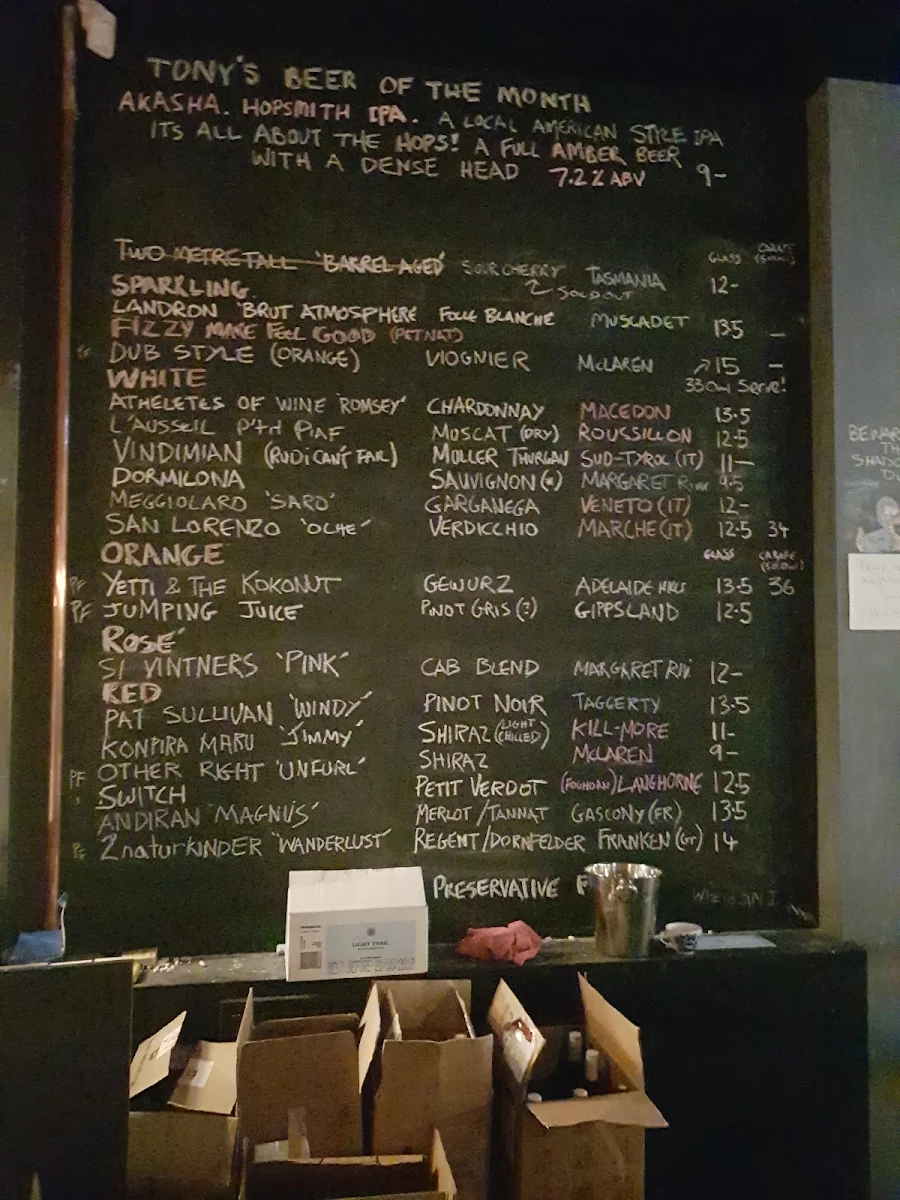 TONY'S BEER OF THE MONTH
AKASHA. HOPSMITH IPA. A LOCAL AMERICAN STYLE IPA
ITS ALL ABOUT THE HOPS! A FULL AMBER BEER
WITH A DENSE HEAD 7.2% ABV 9-
GLASS CARAFE (500ml)
TWO METRE TALL 'BARREL AGED' SOUR CHERRY TASMANIA 12-
SOLD OUT
SPARKLING
LANDRON 'BRUT ATMOSPHERE FOLLE BLANCHE MUSCADET 13.5 -
FIZZY MAKE FEEL GOOD (PETNAT)
DUB STYLE (ORANGE) VIOGNIER McLAREN 15 -
330ml Serve!
WHITE
ATHELETES OF WINE 'ROMSEY' CHARDONNAY MACEDON 13.5
L'AUSSEIL P'TIT PIAF MUSCAT (DRY) ROUSSILLON 12.5
VINDIMIAN (RUDI CAN'T FAIL) MULLER THURGAU SUD-TYROL (IT) 11-
DORMILONA SAUVIGNON (*) MARGARET Riv 9.5
MEGGIOLARO 'SARO' GARGANEGA VENETO (IT) 12-
SAN LORENZO 'OCHE' VERDICCHIO MARCHE (IT) 12.5 34
ORANGE GLASS CARAFE (500ml)
PF YETTI & THE KOKONUT GEWURZ ADELAIDE HILLS 13.5 36
PF JUMPING JUICE PINOT GRIS (?) GIPPSLAND 12.5
ROSE'
SI VINTNERS 'PINK' CAB BLEND MARGARET RIV 12-
RED
PAT SULLIVAN 'WINDY' PINOT NOIR TAGGERTY 13.5
KONPIRA MARU 'JIMMY' SHIRAZ (LIGHT CHILLED) KILL-MORE 11-
PF OTHER RIGHT 'UNFURL' SHIRAZ McLAREN 9-
SWITCH PETIT VERDOT (FOGHORN) LANGHORNE 12.5
ANDIRAN 'MAGNUS' MERLOT/TANNAT GASCONY (FR) 13.5
PF 2naturkinder 'WANDERLUST' REGENT/DORNFELDER FRANKEN 14
PRESERVATIVE F
Where am I
LIGHT TONIC
BEWAR
TH
SHADO